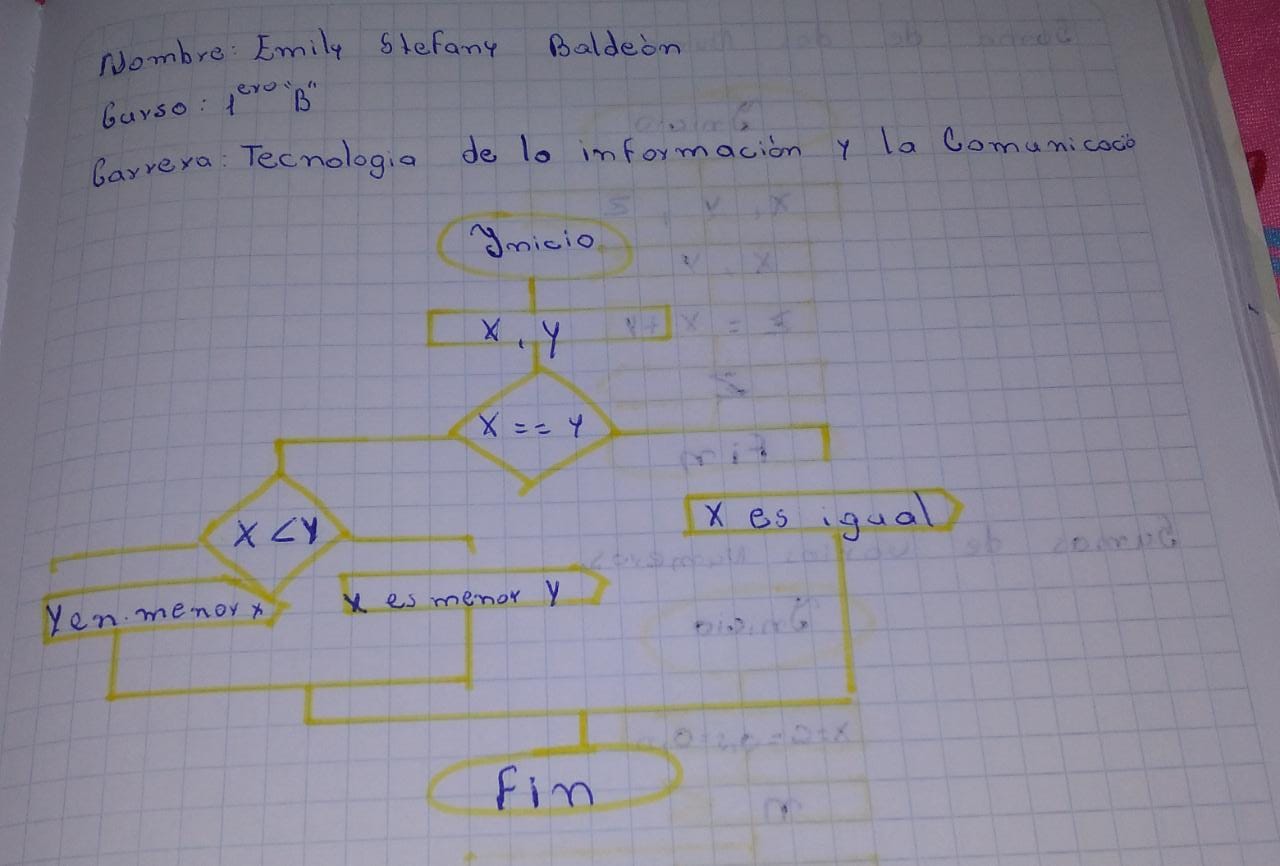 Nombre: Emily Stefany Baldeòn
Curso: 1ero "B"
Carrera: Tecnologia de la información y la Comunicació
Inicio
X, Y
X == Y
X < Y
X es igual
Y en. menor x
X es menor Y
Fin